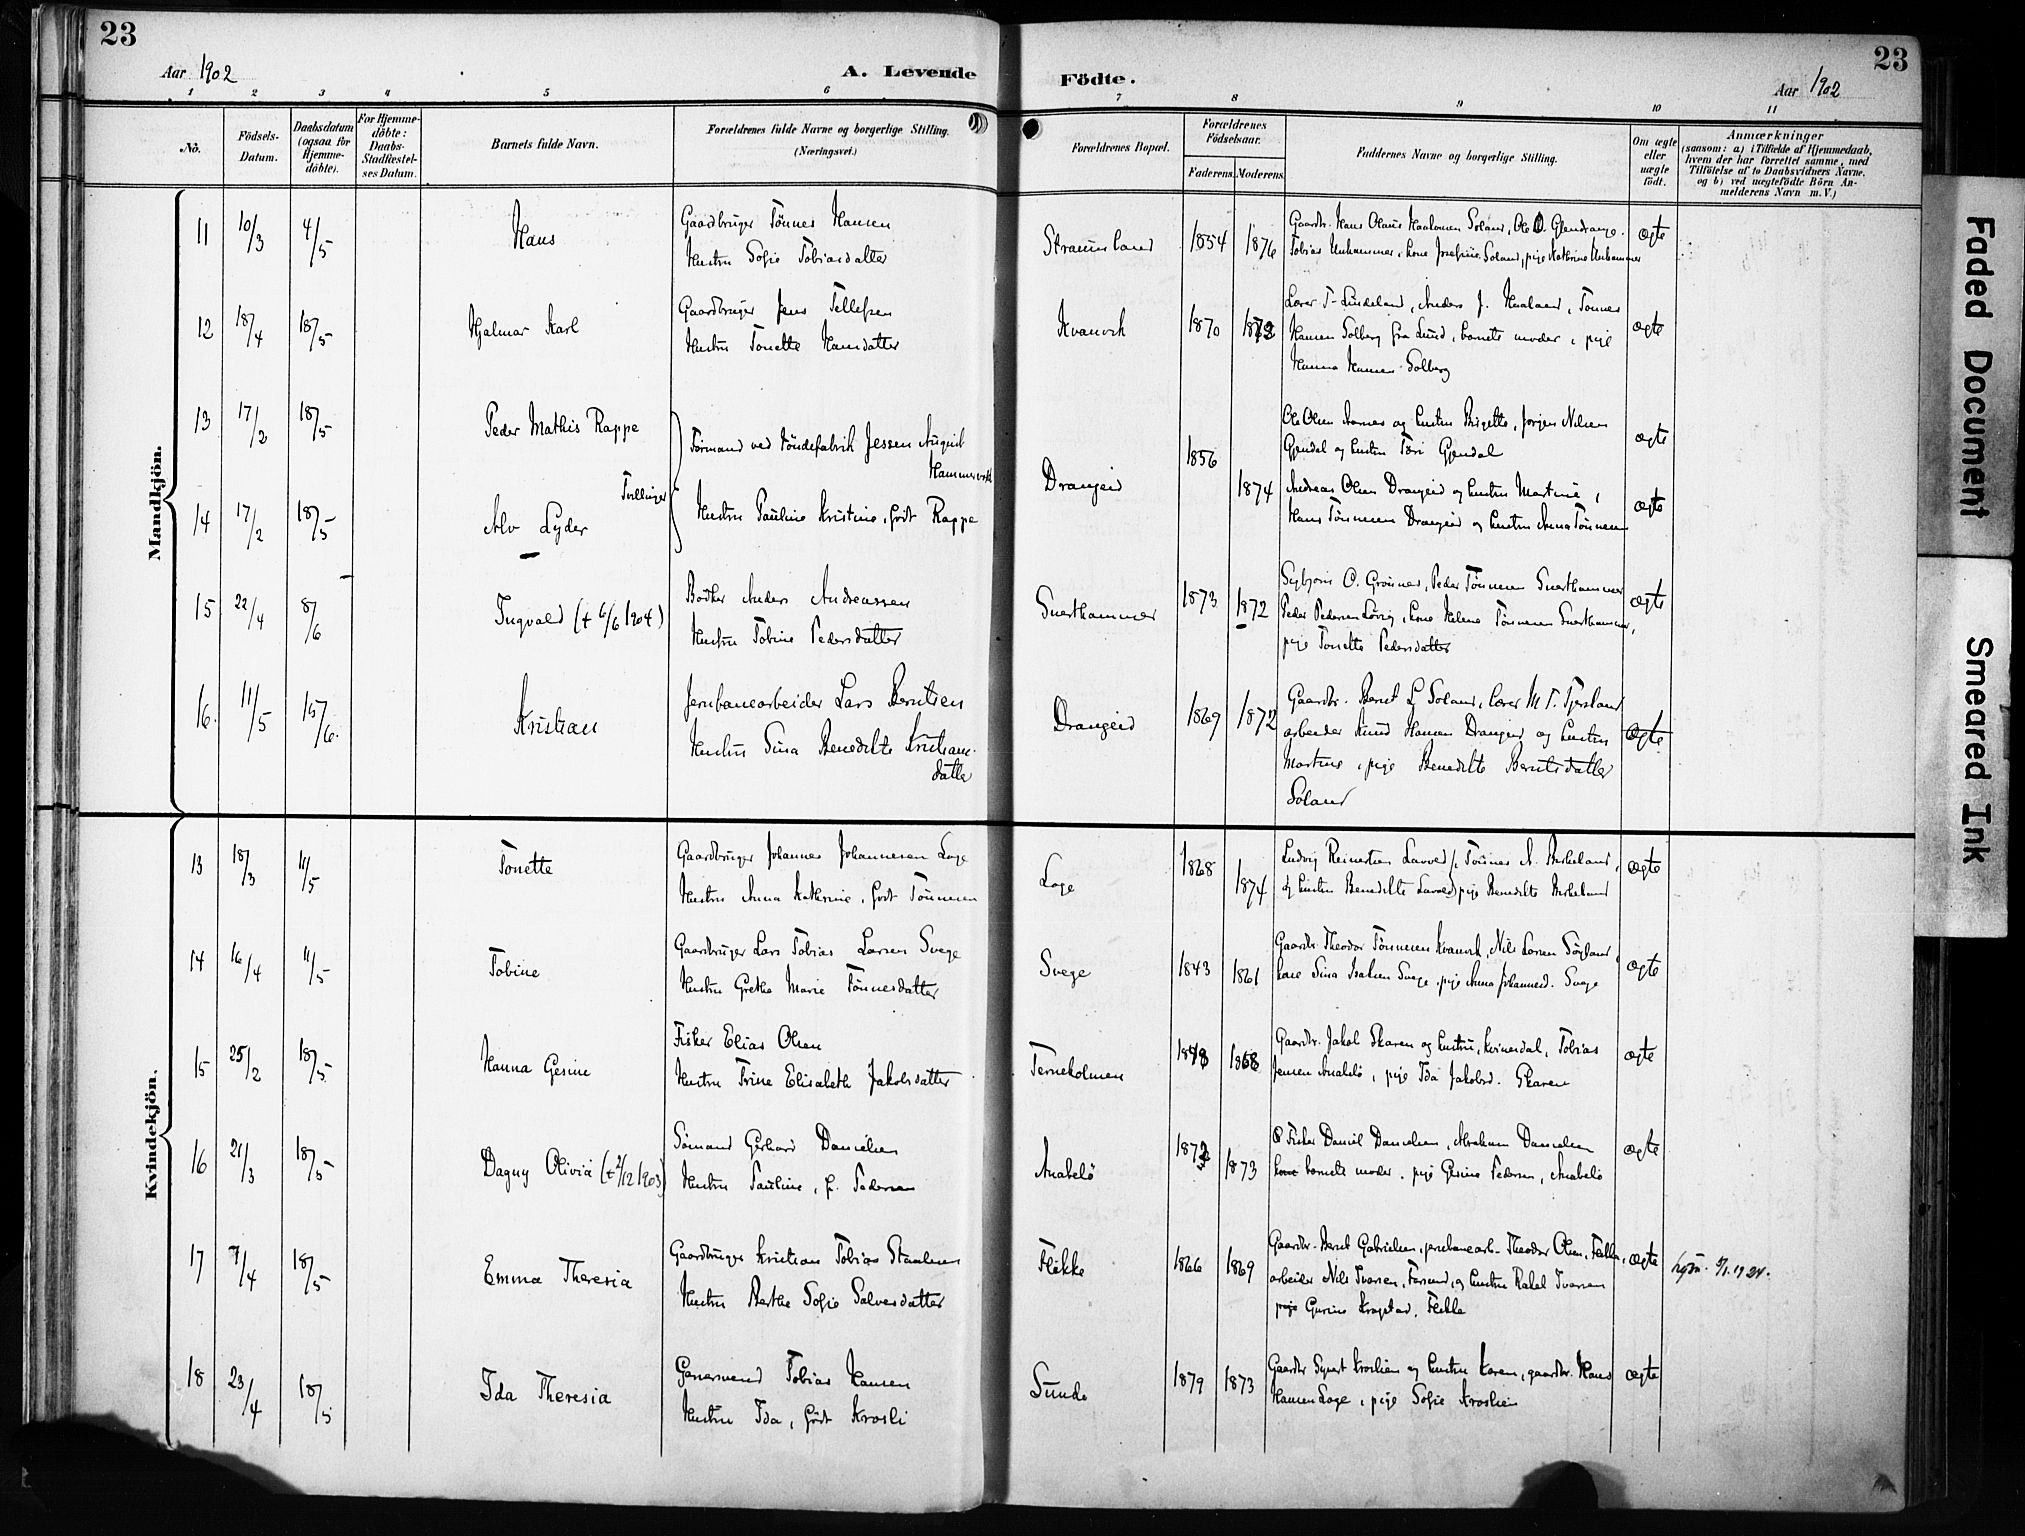 23
Aar 1902
A. Levende
Födte.
Aar 1902
23
1 2 3 4 5 6 7 8 9 10 11
No.
Födsels-Datum.
Daabsdatum (ogsaa for Hjemme-döbte).
For Hjemme-döbte: Daabs-Stadfæstel-ses Datum.
Barnets fulde Navn.
Forældrenes fulde Navne og borgerlige Stilling.
(Næringsvei.)
Forældrenes Bopæl.
Forældrenes Födselsaar.
Faderens. Moderens.
Faddernes Navne og borgerlige Stilling.
Om ægte eller uægte födt.
Anmærkninger
(saasom: a) i Tilfælde af Hjemmedaab,
hvem der har forrettet samme, med
Tilföielse af to Daabsvidners Navne,
og b) ved uægtefödte Börn An-
melderens Navn m. V.)
Mandkjön.
11 10/3 4/5 Hans
Gaardbruger Tönnes Hansen
Hustru Sofie Tobiasdatter
Straumsland 1854 1876
Gaardbr. Hans Olaus Haaloinen Soland, Ole O. Glendrange.
Tobias Unhammer, kone Josefine Soland, pige Kathrine Unhammer
ægte
12 18/4 18/5 Hjalmar Karl
Gaardbruger Jens Tellefsen
Hustru Tonette Hansdatter
Kvanvik 1870 1872
Lærer T. Lindeland, Anders J. Haaland, Tönnes
Hansen Solberg fra Lund, barnets moder, pige
Hanna Hansen Solberg
ægte
13 17/2 18/5 Peder Mathis Rappe
Formand ved töndefabrik Jessen August
Hammervold
Tvillinger
14 17/2 18/5 Alv Lyder
Hustru Pauline Kristine, födt Rappe
Drangeid 1856 1874
Ole Olsen Aames og hustru Birgitte, Jörgen Nilsen
Gjendal og hustru Tari Gjendal
ægte
Andreas Olsen Drangeid og hustru Martine,
Hans Tönnesen Drangeid og hustru Anna Tönnesen
ægte
15 22/4 8/6 Ingvald († 6/6 1904)
Bödker Anders Andreassen
Hustru Tobine Pedersdatter
Snerthammer 1873 1872
Sigbjörn O. Grönnes, Peder Tönnesen Snerthammer
Peder Pedersen Lövig, kone Helene Tönnesen Snerthammer,
pige Tonette Pedersdatter
ægte
16. 11/5 15/6. Kristian
Jernbanearbeider Lars Berntsen
Hustru Sina Benedikte Kristians-
datter
Drangeid 1869 1872
Gaardbr. Bernt L Soland, lærer M. T. Fjersland
arbeider Knud Hansen Drangeid og hustru
Martine, pige Benedikte Berntsdatter
Soland
ægte
Kvindekjön.
13 18/3 11/5 Tonette
Gaardbruger Johannes Johannesen Loge
Hustru Anna Kathrine, födt Tönnesen
Loge 1868 1874
Ludvig Reinertsen Lavold, Tönnes A. Birkeland,
og hustru Benedikte Lavold, pige Benedikte Birkeland
ægte
14 16/4 11/5 Tobine
Gaardbruger Lars Tobias Larsen Svege
Hustru Grethe Marie Tönnesdatter
Svege 1843 1861
Gaardbr. Theodor Tönnesen Kvanvik, Nils Larsen
kone Sina Isaksen Svege, pige Anna Johannesd. Svege
ægte
15 25/2 18/5 Hanna Gesine
Fisker Elias Olsen
Hustru Trine Elisabeth Jakobsdatter
Terneholmen 1868
Gaardbr. Jakob Skaren og hustru, Kvinesdal, Tobias
Jensen Anabelö, pige Ida Jakobsd. Skaren
ægte
16 21/3 18/5 Dagny Olivia († 2/12 1903)
Sömand Gerhard Danielsen
Hustru Pauline, f. Pedersen
Anabelö 1873
Fisker Daniel Danielsen, Abraham Danielsen
barnets moder, pige Gesine Pedersen, Anabelö
ægte
17 7/4 18/5 Emma Theresia
Gaardbruger Kristian Tobias Staalesen
Hustru Berthe Sofie Salvesdatter
Flikke 1866 1869
Gaardbr. Bernt Gabrielsen, jernbanearb. Theodor Olsen, Fekke,
arbeider Nils Ivarsen, Farsund, og hustru Rakel Ivarsen
pige Gurine Kragstad, Flikke
ægte
1924.
18 23/4 18/5 Ida Theresia
Tobias Hansen
Hustru Ida, födt Krosli
Sunde 1879 1873
Gaardbr Syvert Kroslien og hustru Karen, gaardbr. Hans
Hansen Loge, pige Sofie Kroslien
ægte
Faded Document
Smeared Ink